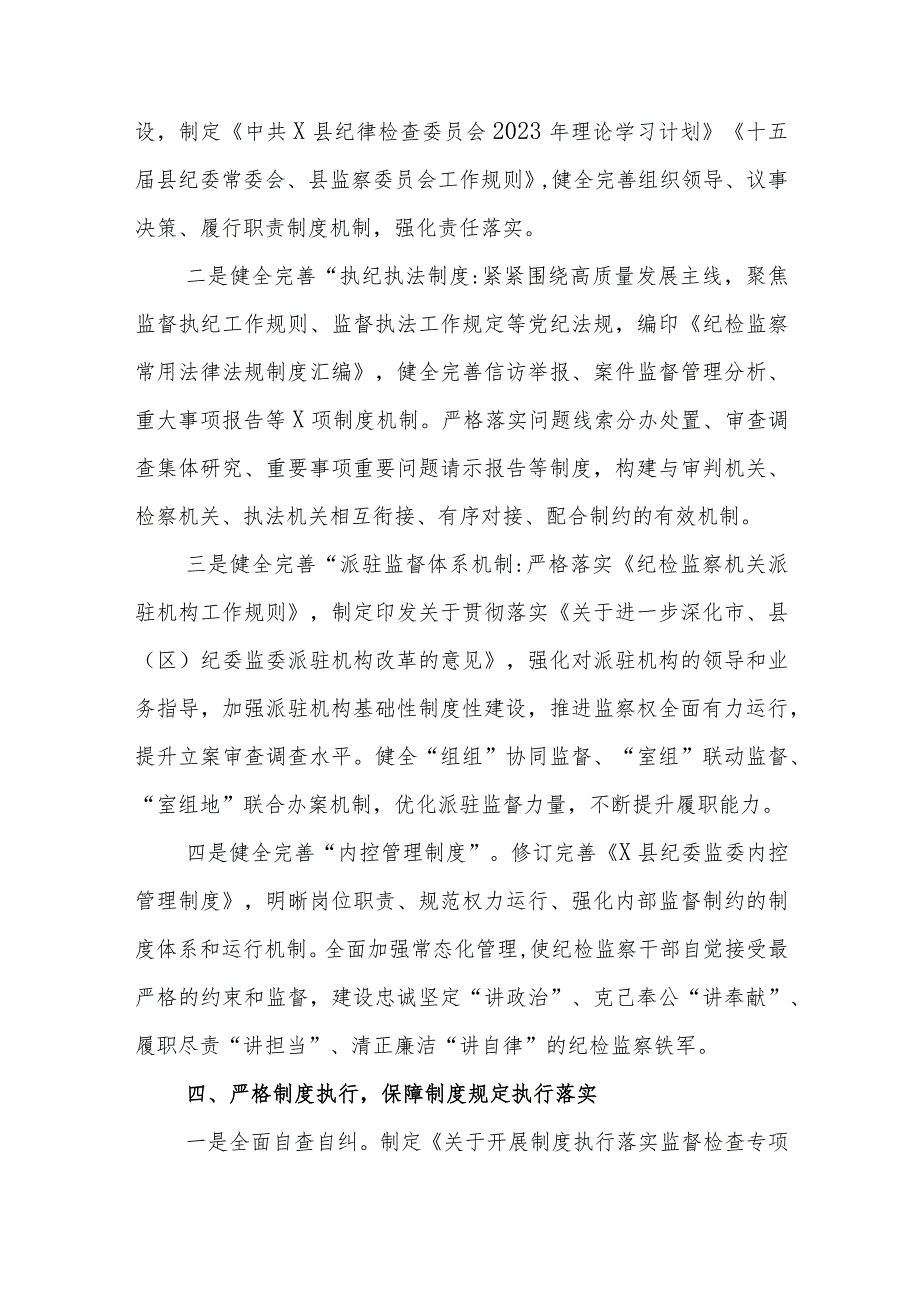 设，制定《中共X县纪律检查委员会2023年理论学习计划》《十五
届县纪委常委会、县监察委员会工作规则》,健全完善组织领导、议事
决策、履行职责制度机制，强化责任落实。
二是健全完善“执纪执法制度:紧紧围绕高质量发展主线，聚焦
监督执纪工作规则、监督执法工作规定等党纪法规，编印《纪检监察
常用法律法规制度汇编》，健全完善信访举报、案件监督管理分析、
重大事项报告等X项制度机制。严格落实问题线索分办处置、审查调
查集体研究、重要事项重要问题请示报告等制度，构建与审判机关、
检察机关、执法机关相互衔接、有序对接、配合制约的有效机制。
三是健全完善“派驻监督体系机制:严格落实《纪检监察机关派
驻机构工作规则》，制定印发关于贯彻落实《关于进一步深化市、县
（区）纪委监委派驻机构改革的意见》，强化对派驻机构的领导和业
务指导，加强派驻机构基础性制度性建设，推进监察权全面有力运行，
提升立案审查调查水平。健全“组组”协同监督、“室组”联动监督、
“室组地”联合办案机制，优化派驻监督力量，不断提升履职能力。
四是健全完善“内控管理制度”。修订完善《X县纪委监委内控
管理制度》，明晰岗位职责、规范权力运行、强化内部监督制约的制
度体系和运行机制。全面加强常态化管理,使纪检监察干部自觉接受最
严格的约束和监督，建设忠诚坚定“讲政治”、克己奉公“讲奉献”、
履职尽责“讲担当”、清正廉洁“讲自律”的纪检监察铁军。
四、严格制度执行，保障制度规定执行落实
一是全面自查自纠。制定《关于开展制度执行落实监督检查专项